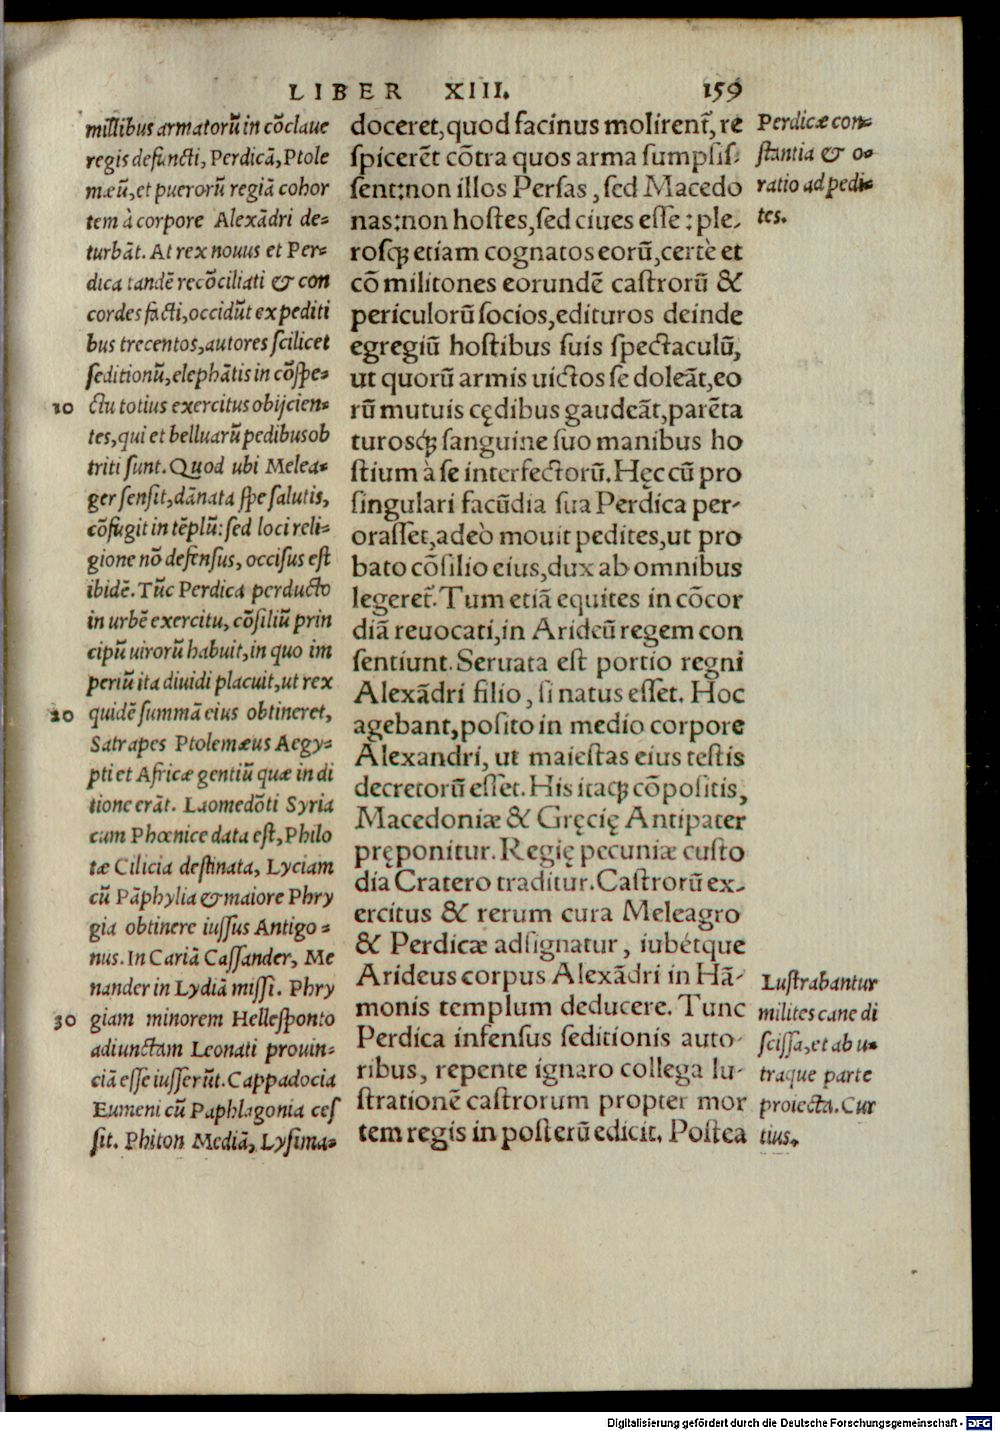 LIBER XIII. 159
millibus armatorũ in cõclaue
regis defuncti, Perdicã, Ptole
mæũ, et puerorũ regiã cohor
tem à corpore Alexãdri de-
turbãt. At rex nouus et Per-
dica tandẽ recõciliati & con
cordes facti, occidũt expediti
bus trecentos, autores scilicet
seditionũ, elephãtis in cõspe-
10 ctu totius exercitus obijcien-
tes, qui et belluarũ pedibus ob
triti sunt. Quod ubi Melea-
ger sensit, dãnata spe salutis,
cõfugit in tẽplũ: sed loci reli-
gione nõ defensus, occisus est
ibidẽ. Tũc Perdica perducto
in urbẽ exercitu, cõsiliũ prin
cipũ uirorũ habuit, in quo im
periũ ita diuidi placuit, ut rex
20 quidẽ summã eius obtineret,
Satrapes Ptolemæus Aegy-
pti et Africæ gentiũ quæ in di
tione erãt. Laomedõti Syria
cum Phœnice data est, Philo
tæ Cilicia destinata, Lyciam
cũ Pãphylia & maiore Phry
gia obtinere iussus Antigo-
nus. In Cariã Cassander, Me
nander in Lydiã missi. Phry
30 giam minorem Hellesponto
adiunctam Leonati prouin-
ciã esse iusserũt. Cappadocia
Eumeni cũ Paphlagonia ces
sit. Phiton Mediã, Lysima-
doceret, quod facinus molirent᷑, re
spicerẽt cõtra quos arma sumpsis-
sent: non illos Persas, sed Macedo
nas: non hostes, sed ciues esse: ple-
rosq; etiam cognatos eorũ, certè et
cõmilitones eorundẽ castrorũ &
periculorũ socios, edituros deinde
egregiũ hostibus suis spectaculũ,
ut quorũ armis uictos se doleãt, eo
rũ mutuis cędibus gaudeãt, parẽta
turosq; sanguine suo manibus ho
stium à se interfectorũ. Hęc cũ pro
singulari facũdia sua Perdica per-
orasset, adeò mouit pedites, ut pro
bato cõsilio eius, dux ab omnibus
legeret᷑. Tum etiã equites in cõcor
diã reuocati, in Arideũ regem con
sentiunt. Seruata est portio regni
Alexãdri filio, si natus esset. Hoc
agebant, posito in medio corpore
Alexandri, ut maiestas eius testis
decretorũ esset. His itaq; cõpositis,
Macedoniæ & Gręcię Antipater
pręponitur. Regię pecuniæ custo
dia Cratero traditur. Castrorũ ex-
ercitus & rerum cura Meleagro
& Perdicæ adsignatur, iubétque
Arideus corpus Alexãdri in Hã-
monis templum deducere. Tunc
Perdica infensus seditionis auto-
ribus, repente ignaro collega lu-
strationẽ castrorum propter mor
tem regis in posterũ edicit. Postea
Perdicæ con-
stantia & o-
ratio ad pedi-
tes.
Lustrabantur
milites cane di
scissa, et ab u-
traque parte
proiecta. Cur
tius.
Digitalisierung gefördert durch die Deutsche Forschungsgemeinschaft - DFG